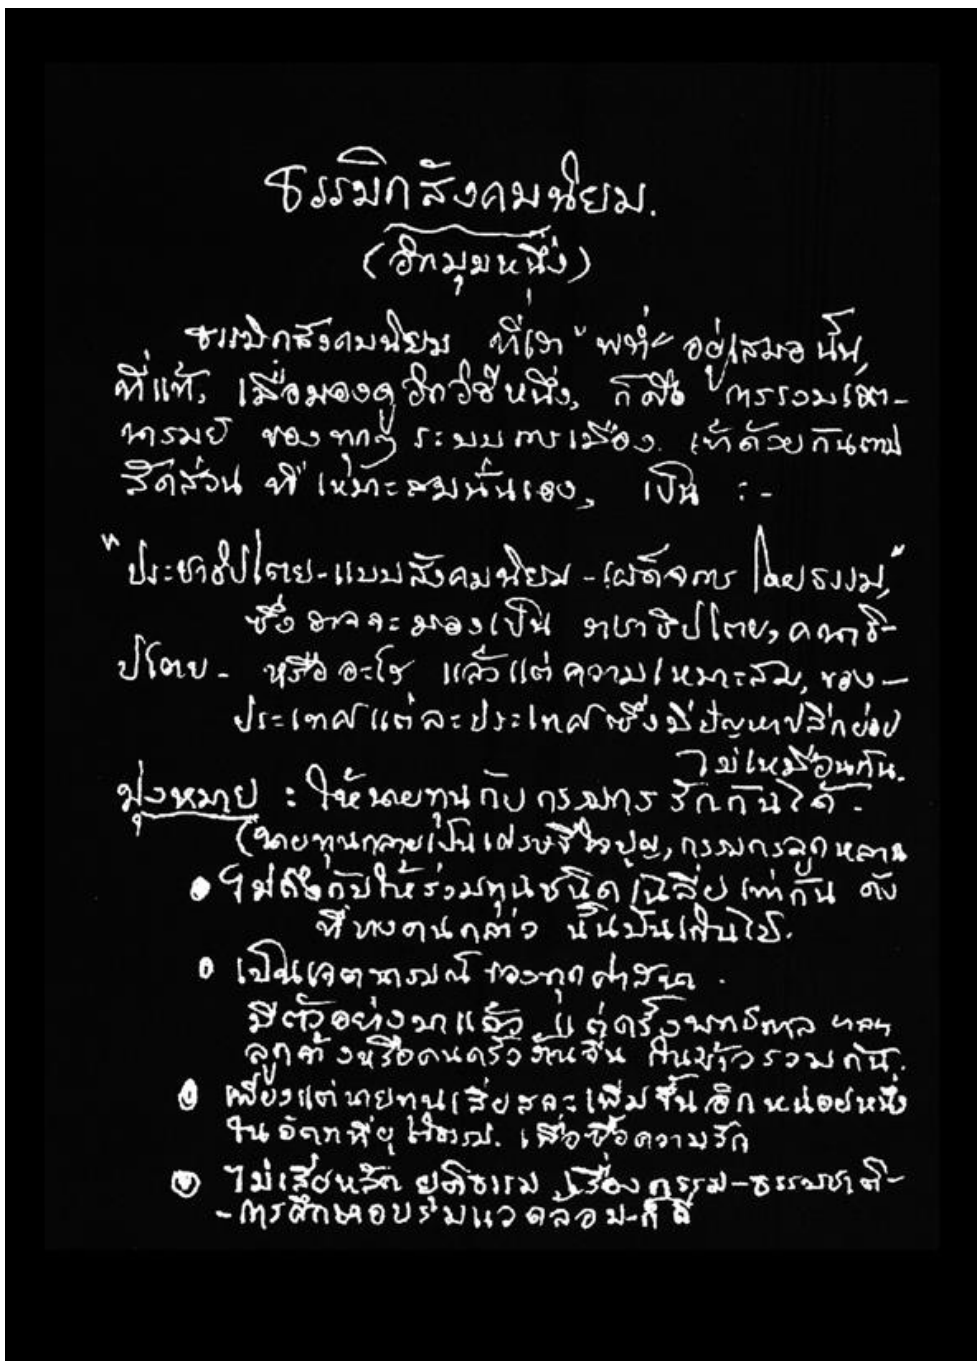 ธรรมิกสังคมนิยม.
(อีกมุมหนึ่ง)
ธรรมิกสังคมนิยม ที่เรา "พร่ำ" อยู่เสมอ นั้น,
ที่แท้, เมื่อมองดู อีกวิธีหนึ่ง, ก็คือ การรวมเจตนา-
นารมย์ ของทุกๆ ระบบการเมือง. เข้าด้วยกันตาม
สัดส่วน ที่ เหมาะสมนั่นเอง, เป็น :-
"ประชาธิปไตย-แบบสังคมนิยม-เผด็จการ โดยธรรม,"
ซึ่ง อาจจะ มองเป็น ราชาธิปไตย, คณาธิ-
ปไตย - หรือ อะไร แล้วแต่ ความเหมาะสม, ของ-
ประเทศแต่ละประเทศ ซึ่งมีปัญหาปลีกย่อย
ไม่เหมือนกัน.
มุ่งหมาย : ให้นายทุน กับ กรรมกร รักกันได้ -
(นายทุนกลายเป็นเศรษฐีใจบุญ, กรรมกรลูกหลาน
• ไม่ถึงกับให้ร่วมทุนชนิด เฉลี่ย เท่ากัน ดัง
ที่ บางคนกล่าว นั้นมันเกินไป.
• เป็นเจตนารมณ์ ของทุกศาสนา.
มีตัวอย่างมาแล้ว แต่ครั้งพุทธกาล
ลูกจ้างหรือคนครัว กินข้าวรวมกัน.
• เพียงแต่นายทุน เสียสละ เพิ่มขึ้น อีกหน่อยหนึ่ง
ใน อัตราที่ยุติธรรม. เพื่อซื้อความรัก
• ไม่เสียหลัก ยุติธรรม เรื่อง กรรม-ธรรมชาติ-
-การศึกษาอบรมแวดล้อม-ก็ดี